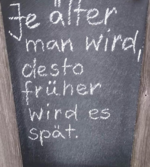 Je älter
man wird,
desto
früher
wird es
spät.